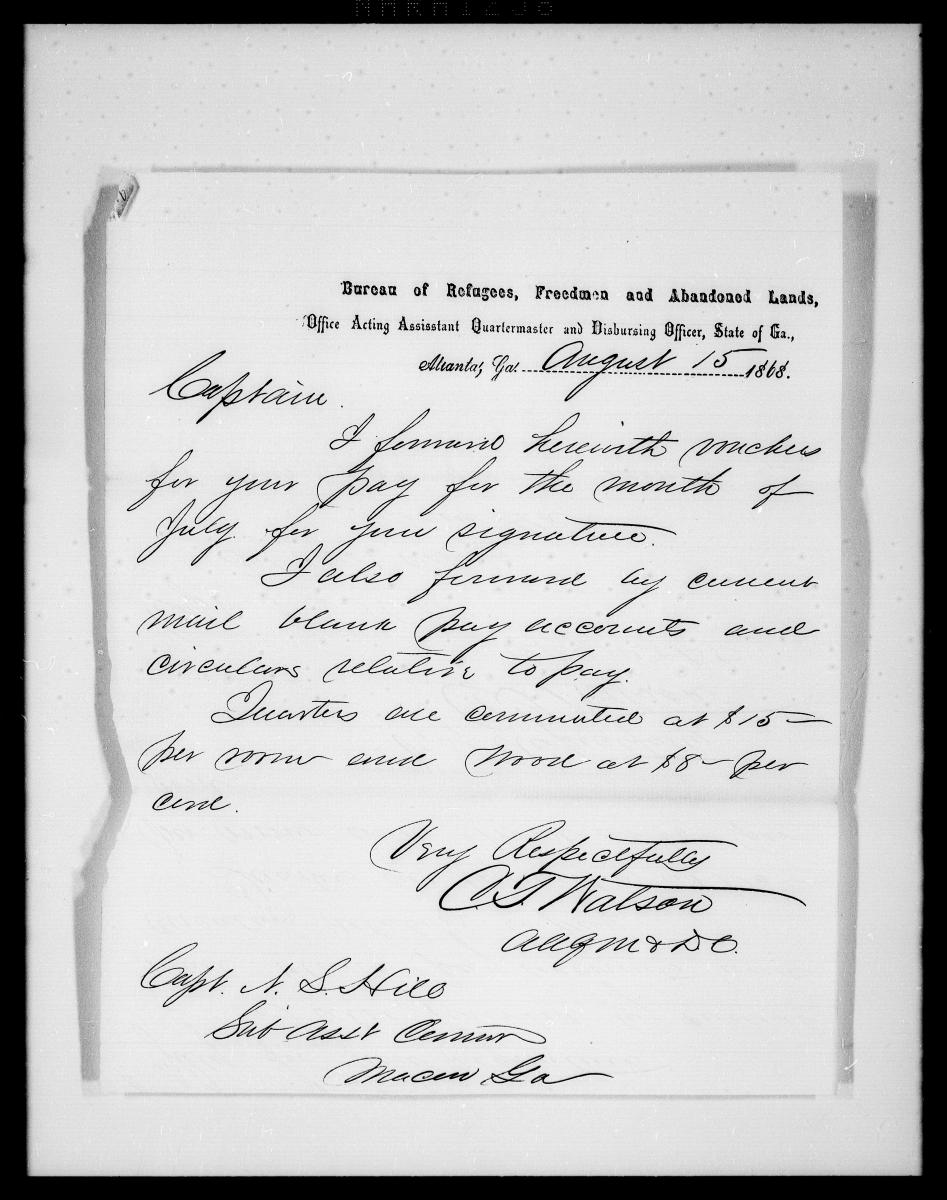 Bureau of Refugees, Freedmen and Abandoned Lands,
Office Acting Assisstant Quartermaster and Disbursing Officer, State of Ga.,
Atlanta, Ga. August 15 1868.
Captain.
I forward herewith vouchers
for your pay for the month of
July for your signature.
I also forward by current
mail blank pay accounts and
circulars relative to pay.
Quarters are commuted at $15-
per room and wood at $8- per
cord.
Very Respectfully
C. T. Watson
AAQM & DO.
Capt. N. S. Hill
Sub Asst Commr
Macon Ga